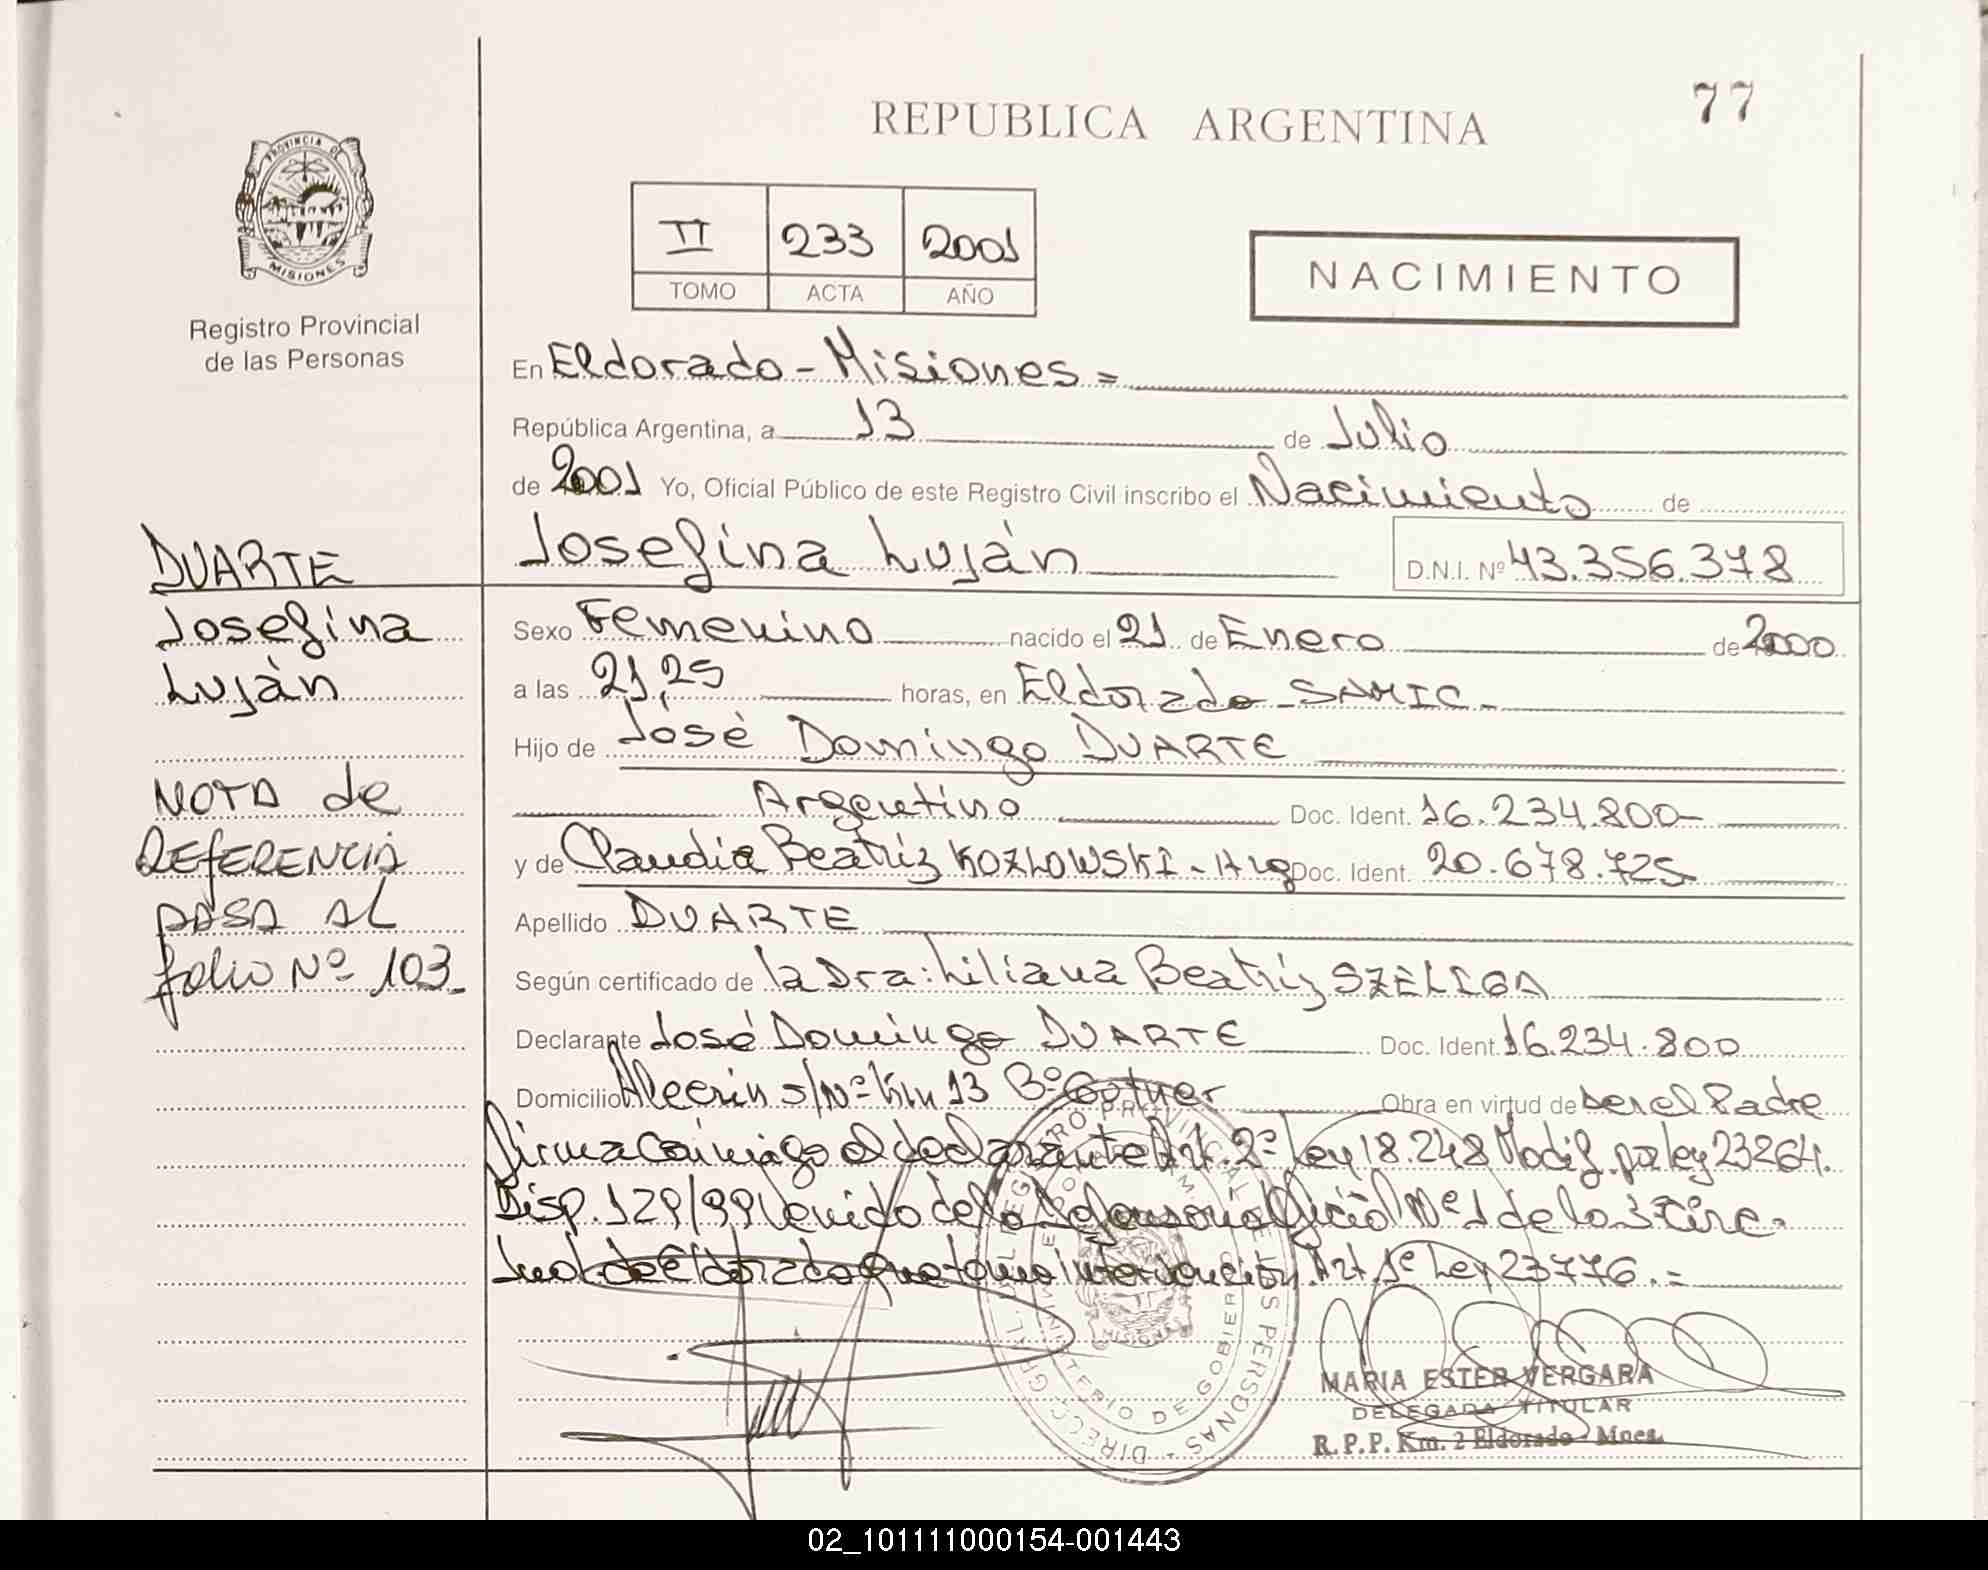 77
REPUBLICA ARGENTINA
PROVINCIA D
MISIONES
Registro Provincial
de las Personas
II 233 2001
TOMO ACTA AÑO
NACIMIENTO
En Eldorado - Misiones =
República Argentina, a 13 de Julio
de 2001 Yo, Oficial Público de este Registro Civil inscribo el Nacimiento de
Josefina Luján D.N.I. Nº 43.356.378
DUARTE
Josefina
Luján
NOTA de
REfERENCIA
PASA AL
folio Nº 103
Sexo Femenino nacido el 21 de Enero de 2000
a las 21,25 horas, en Eldorado - SAMIC -
Hijo de José Domingo DUARTE
Argentino Doc. Ident. 16.234.800-
y de Claudia Beatriz KOZLOWSKI - Arg Doc. Ident. 20.678.725
Apellido DUARTE
Según certificado de la Dra: Liliana Beatriz SZELIGA
Declarante José Domingo DUARTE Doc. Ident. 16.234.800
Domicilio Alecrin s/Nº Km 13 Bº Obra en virtud de ser el Padre
firma conmigo el declarante Art. 2º Ley 18.248 Modif. por ley 23264.
Disp. 129/99 venido de la Defensoria Oficial Nº 1 de la 3º Circ.
Jud. de Eldorado que tomo intervención. Art. 1º Ley 23776.=
MARIA ESTER VERGARA
DELEGADA TITULAR
R.P.P. Km. 2 Eldorado - Mnes.
02_101111000154-001443